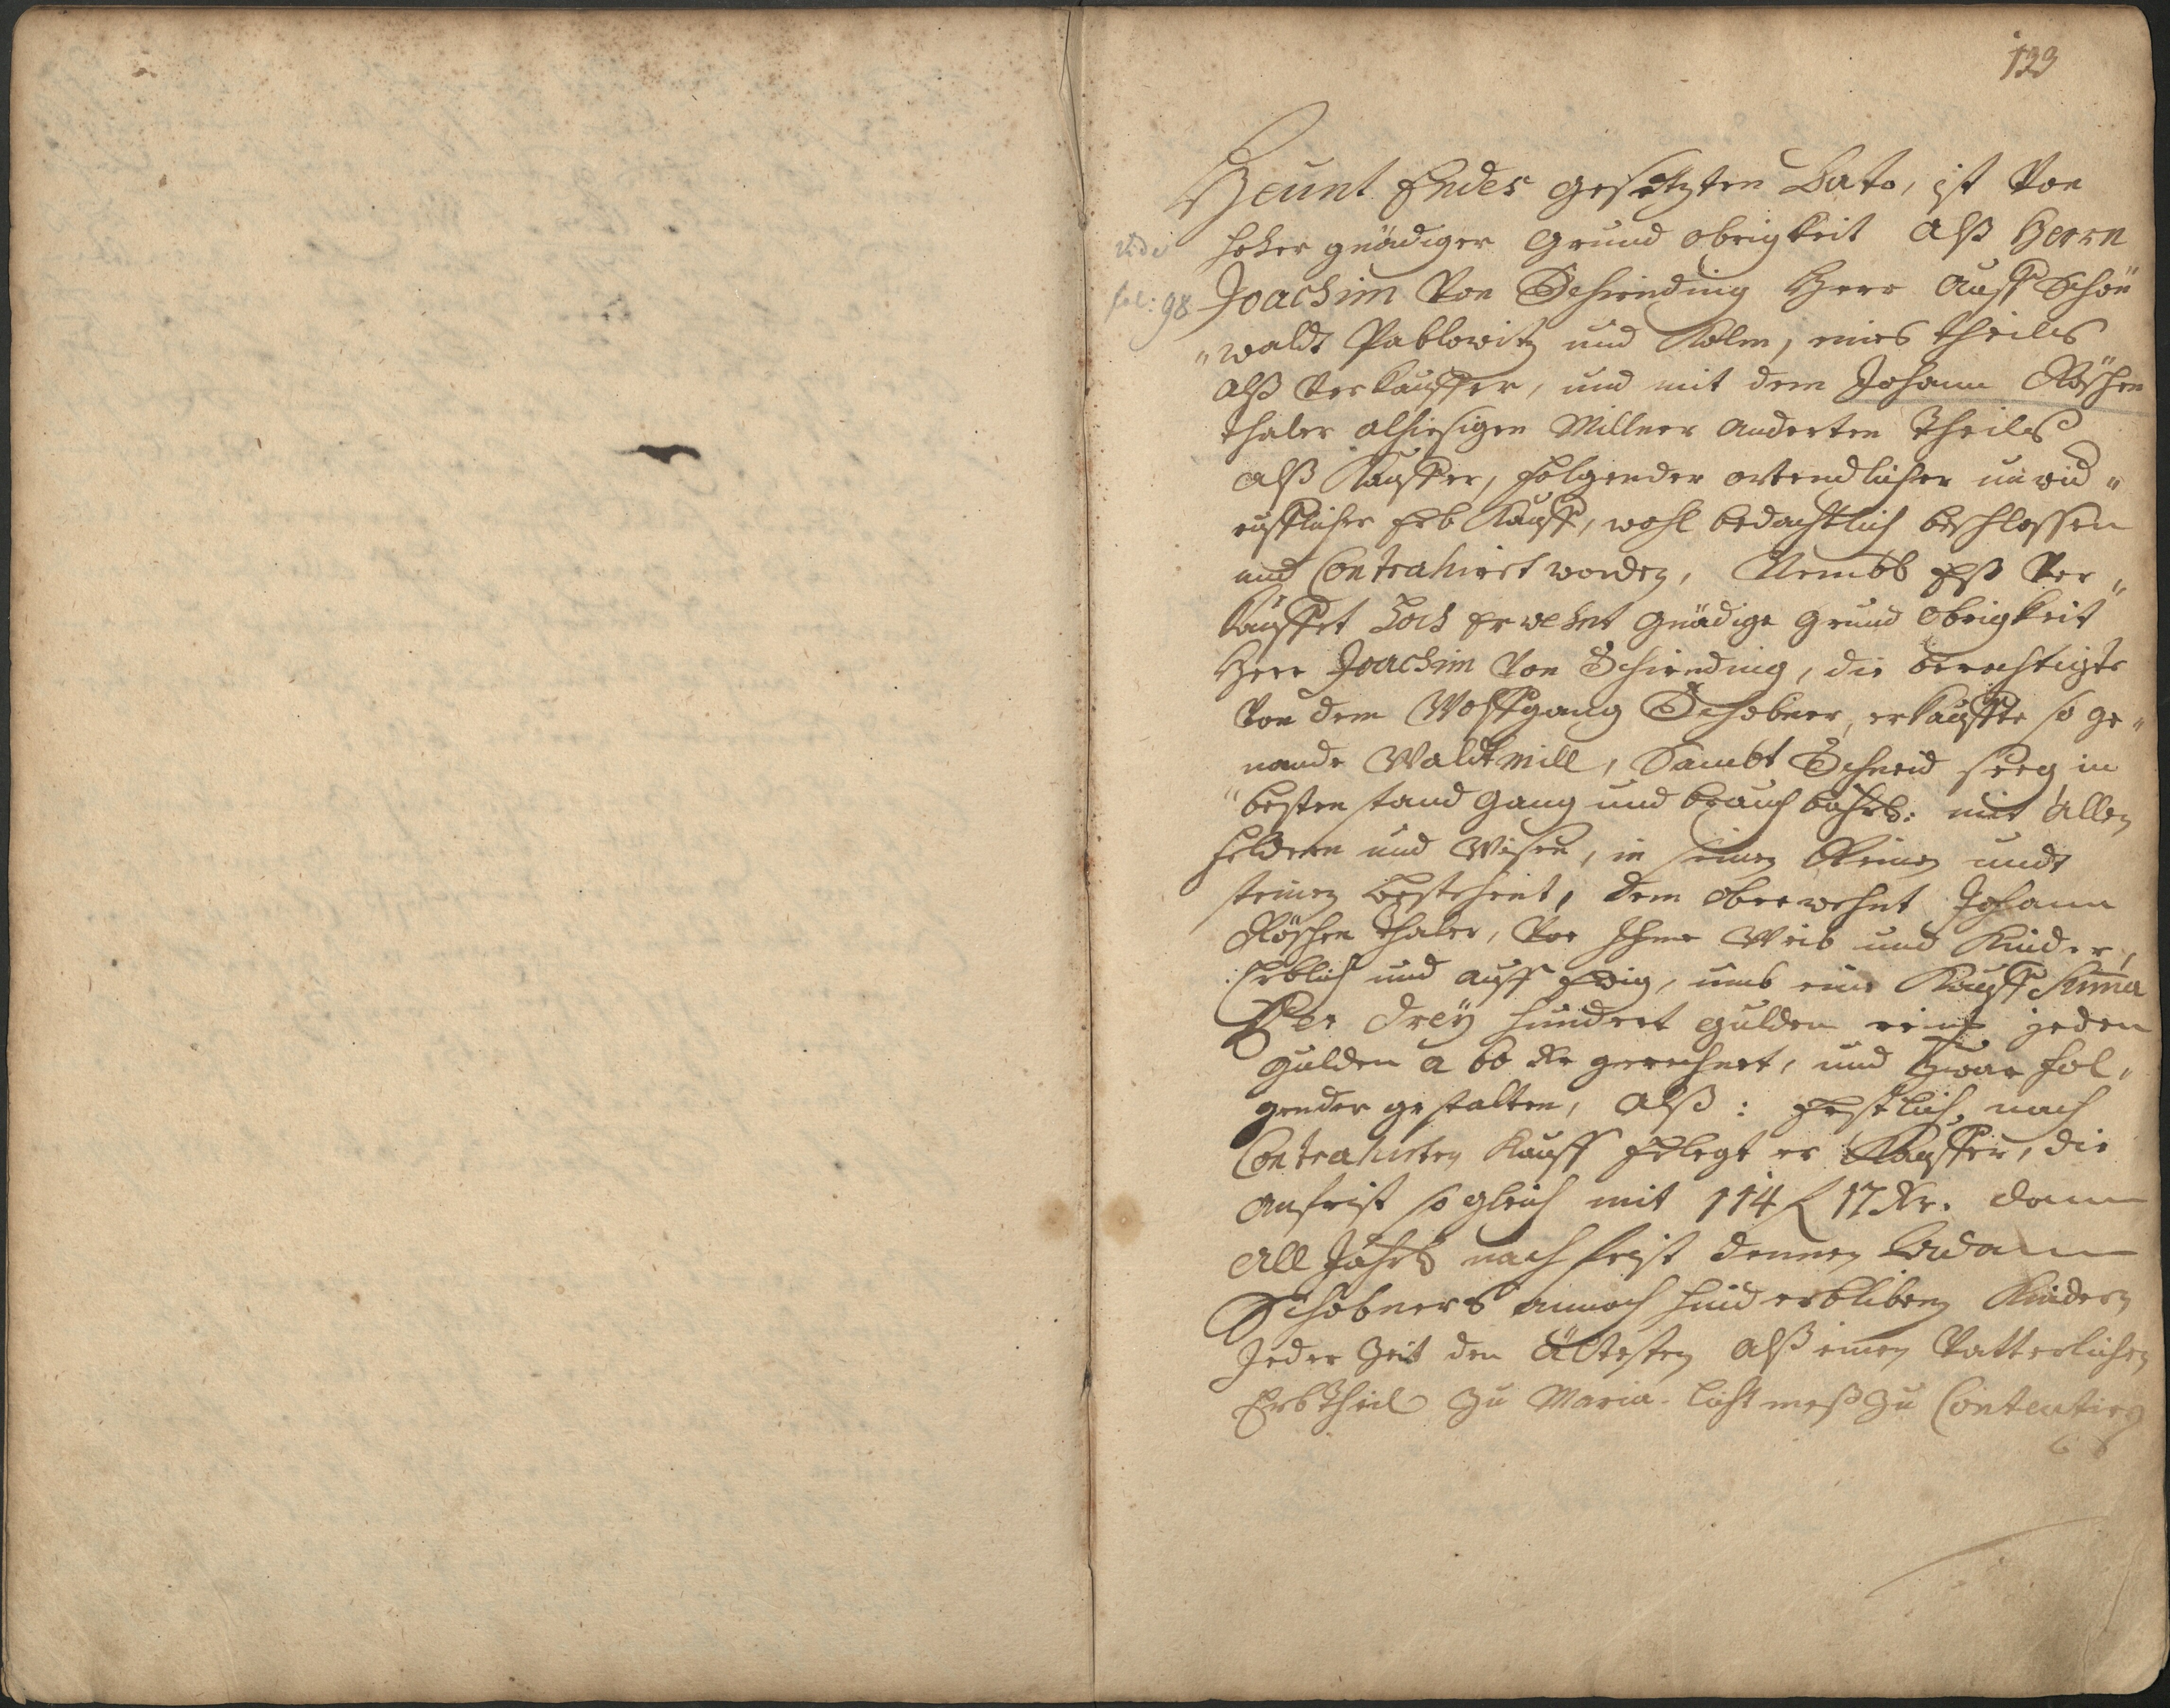 133
Heunt Endes gesetzten Dato, ist Von
vide
hoher gnädiger Grund obrigkeit Alß Herrn
fol: 98
Joachim Von Schirnding Herr Auff Schön
"waldt Pablowitz und Kolm, eines theils
Alß Verkauffer, und mit dem Johann Röschen
thaler alhiesigen Millner anderten Theils
Alß Kauffer, folgender ortendlicher unwid"
rufflicher Erb Kauff, wohl bedachtlich beschlossen
und Contrahirt worden, Nembl Eß Ver"
kauffet Hoch Erwehnt Gnädige Grund Obrigkeit
Herr Joachim Von Schirnding, die berechtigte
Von dem Wolffgang Schobner, erkauffte so ge"
nande Waldtmill, Sambt Schneid seeg in
"besten stand Gang und brauchbahrk: mit Allen
feldern und Wisen, in seinen Reinen undt
steinen bestehent, dem oberwehnt Johann
Röschen thaler, Vor Ihme Weib und Kinder,
:Erblich und auff Ewig, umb eine Kauff Suma
Per drey hundert gulden reinl jeden
gulden a 60 Kr gerechnet, und Zwar fol"
gender gestalten, Alß: Erstlich, nach
Contrahirten Kauff Erlegt er Kauffer, die
anfrist so gleich mit 114 f 17 Kr. dann
All Jährl nach frist dennen Adam
Schobners annoch hinderblibenen Kindern
Jeder Zeit den Ältesten Alß einen Vatterlichen
Erbtheil Zu Maria-lichtmeß zu Contentiren